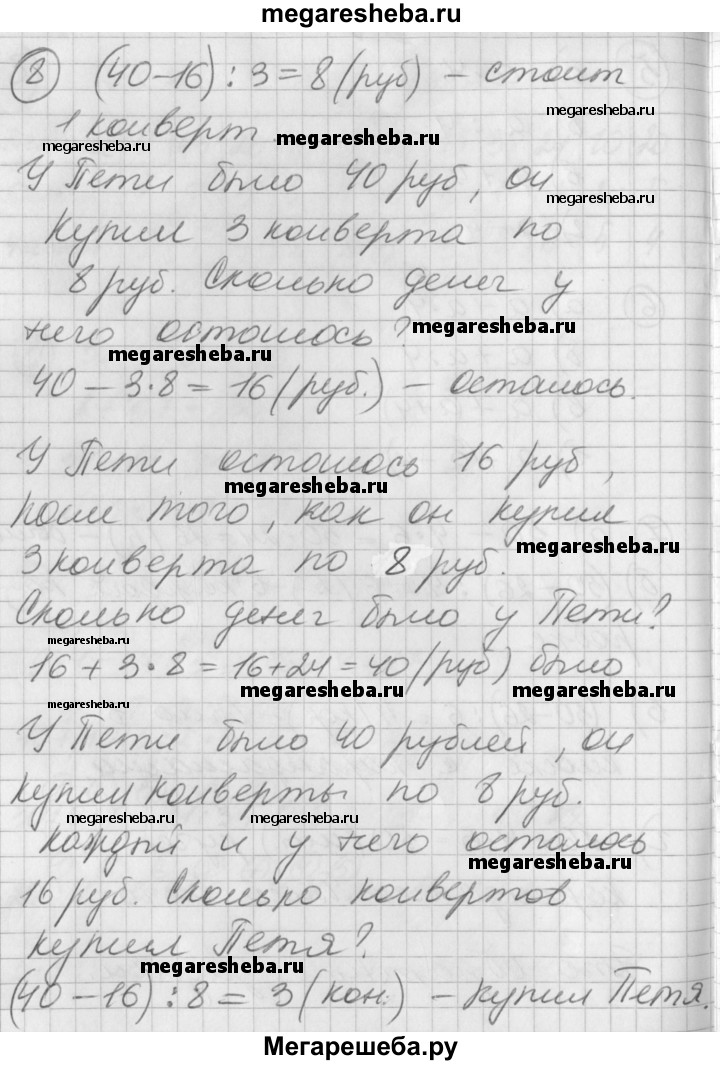 megaresheba.ru
8 (40-16) : 3 = 8 (руб) - стоит
megaresheba.ru
1 конверт
megaresheba.ru
megaresheba.ru
У Пети было 40 руб, он
megaresheba.ru
купил 3 конверта по
8 руб. Сколько денег у
него осталось?
megaresheba.ru
megaresheba.ru
40 - 3·8 = 16 (руб.) - осталось.
У Пети осталось 16 руб,
megaresheba.ru
после того, как он купил
megaresheba.ru
3 конверта по 8 руб.
Сколько денег было у Пети?
megaresheba.ru
16 + 3·8 = 16+24 = 40 (руб) было
megaresheba.ru megaresheba.ru
У Пети было 40 рублей, он
купил конверты по 8 руб.
megaresheba.ru megaresheba.ru
каждый и у него осталось
megaresheba.ru
16 руб. Сколько конвертов
купил Петя?
megaresheba.ru
(40-16) : 8 = 3 (кон.) - купил Петя.
Мегарешеба.ру